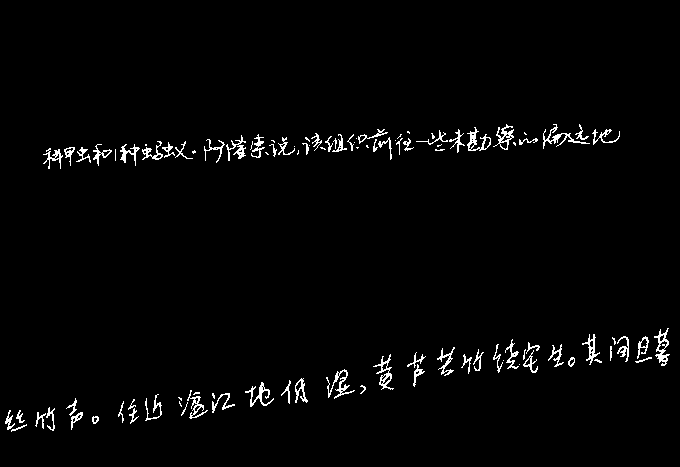 种甲虫和1种蚂蚁。阿隆索说,该组织前往一些未勘察的偏远地
丝竹声。住近湓江地低湿,黄芦苦竹绕宅生。其间旦暮